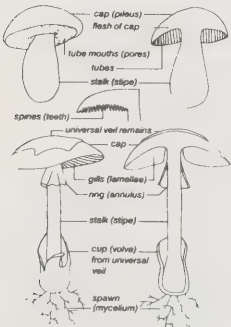 cap (pileus)
flesh of cap
tube mouths (pores)
tubes
stalk (stipe)
spines (teeth)
universal veil remains
cap
gills (lamellae)
ring (annulus)
stalk (stipe)
cup (volva)
from universal
veil
spawn
(mycelium)